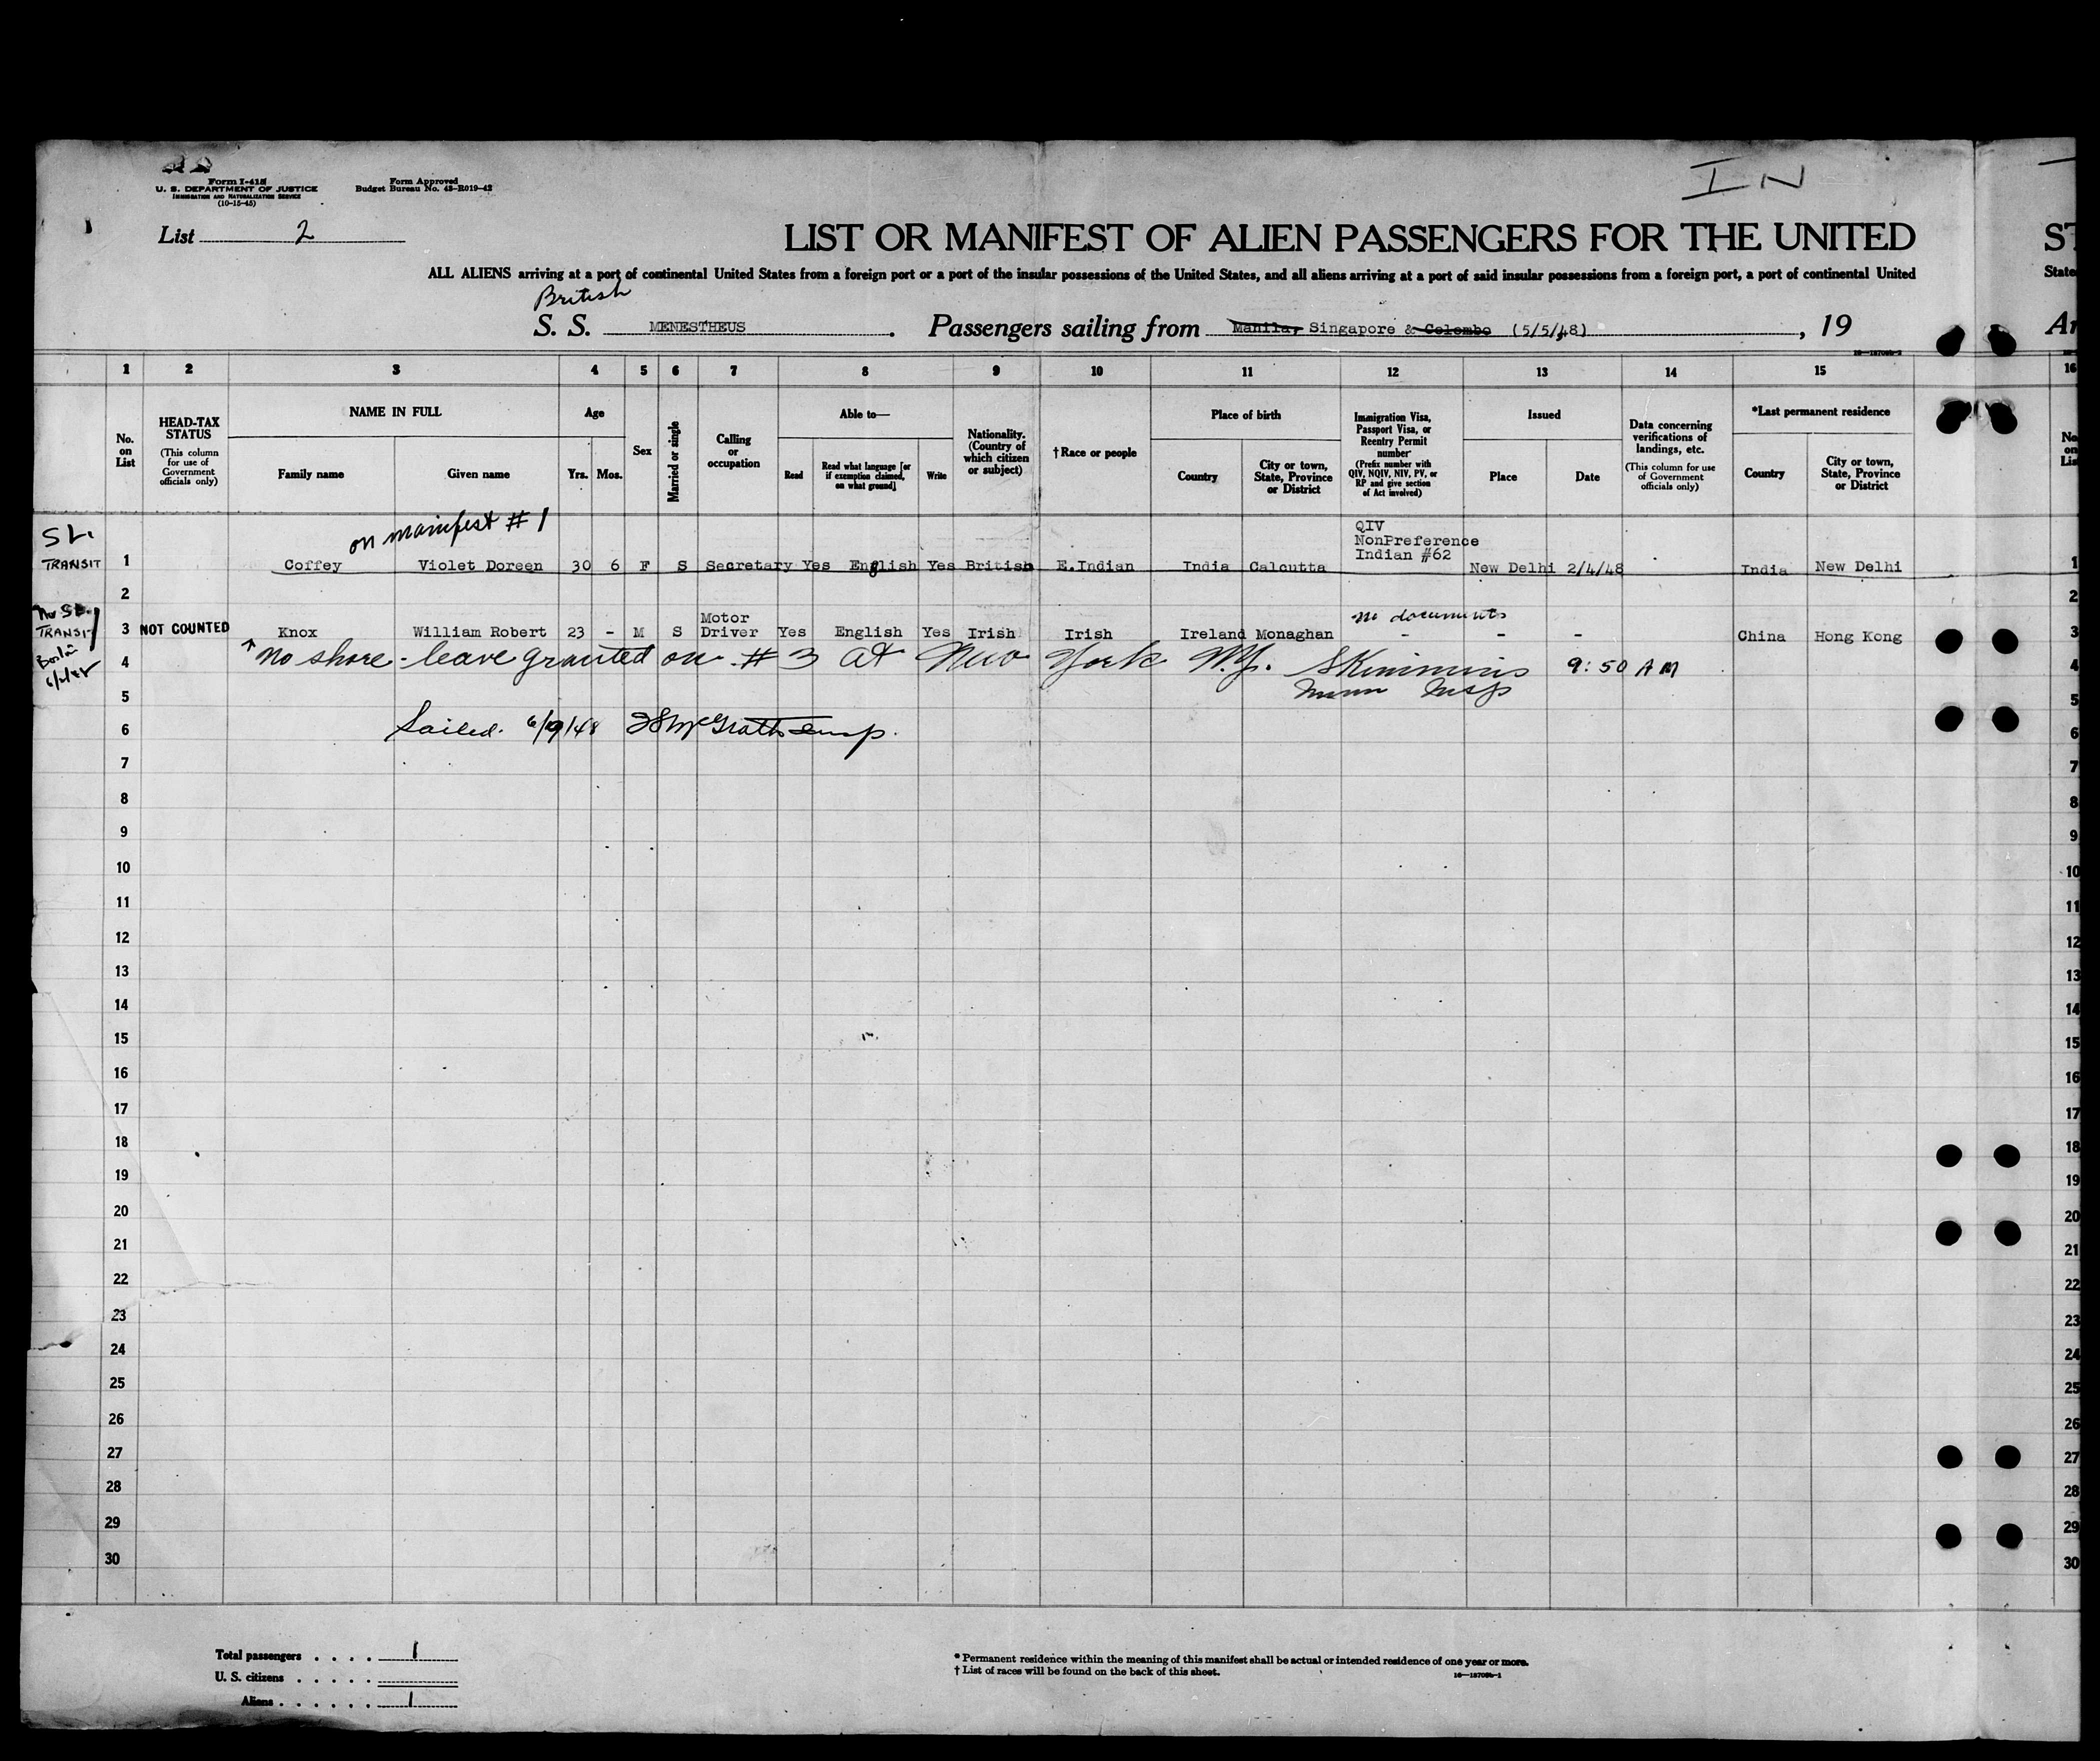 Form I-415
U. S. DEPARTMENT OF JUSTICE
IMMIGRATION AND NATURALIZATION SERVICE
(10-15-45)
Form Approved
Budget Bureau No. 43-R019-42
IN
List 2
LIST OR MANIFEST OF ALIEN PASSENGERS FOR THE UNITED
ST
ALL ALIENS arriving at a port of continental United States from a foreign port or a port of the insular possessions of the United States, and all aliens arriving at a port of said insular possessions from a foreign port, a port of continental United
State
British
S. S. MENESTHEUS. Passengers sailing from Manila, Singapore & Colombo (5/5/48), 19
Ar
1 2 3 4 5 6 7 8 9 10 11 12 13 14 15 16
No. on List
HEAD-TAX STATUS
(This column for use of Government officials only)
NAME IN FULL
Family name Given name
Age
Yrs. Mos.
Sex
Married or single
Calling or occupation
Able to—
Read
Read what language [or if exemption claimed, on what ground]
Write
Nationality. (Country of which citizen or subject)
†Race or people
Place of birth
Country
City or town, State, Province or District
Immigration Visa, Passport Visa, or Reentry Permit number
(Prefix number with QIV, NQIV, NIV, PV, or RP and give section of Act involved)
Issued
Place Date
Data concerning verifications of landings, etc.
(This column for use of Government officials only)
*Last permanent residence
Country
City or town, State, Province or District
on manifest # 1
SL.
TRANSIT
QIV
NonPreference
Indian #62
1 Coffey Violet Doreen 30 6 F S Secretary Yes English Yes British E.Indian India Calcutta New Delhi 2/4/48 India New Delhi 1
2 2
No SL.
TRANSIT
Boston
NOT COUNTED
no documents
3 Knox William Robert 23 - M S Motor Driver Yes English Yes Irish Irish Ireland Monaghan - - - China Hong Kong 3
4 No shore-leave granted on #3 at New York N.Y. 9:50 AM 4
Insp
5 5
6 Sailed. 6/9/48 Insp. 6
7 7
8 8
9 9
10 10
11 11
12 12
13 13
14 14
15 15
16 16
17 17
18 18
19 19
20 20
21 21
22 22
23 23
24 24
25 25
26 26
27 27
28 28
29 29
30 30
Total passengers . . . . 1
U. S. citizens . . . . .
Aliens . . . . . . 1
* Permanent residence within the meaning of this manifest shall be actual or intended residence of one year or more.
† List of races will be found on the back of this sheet.